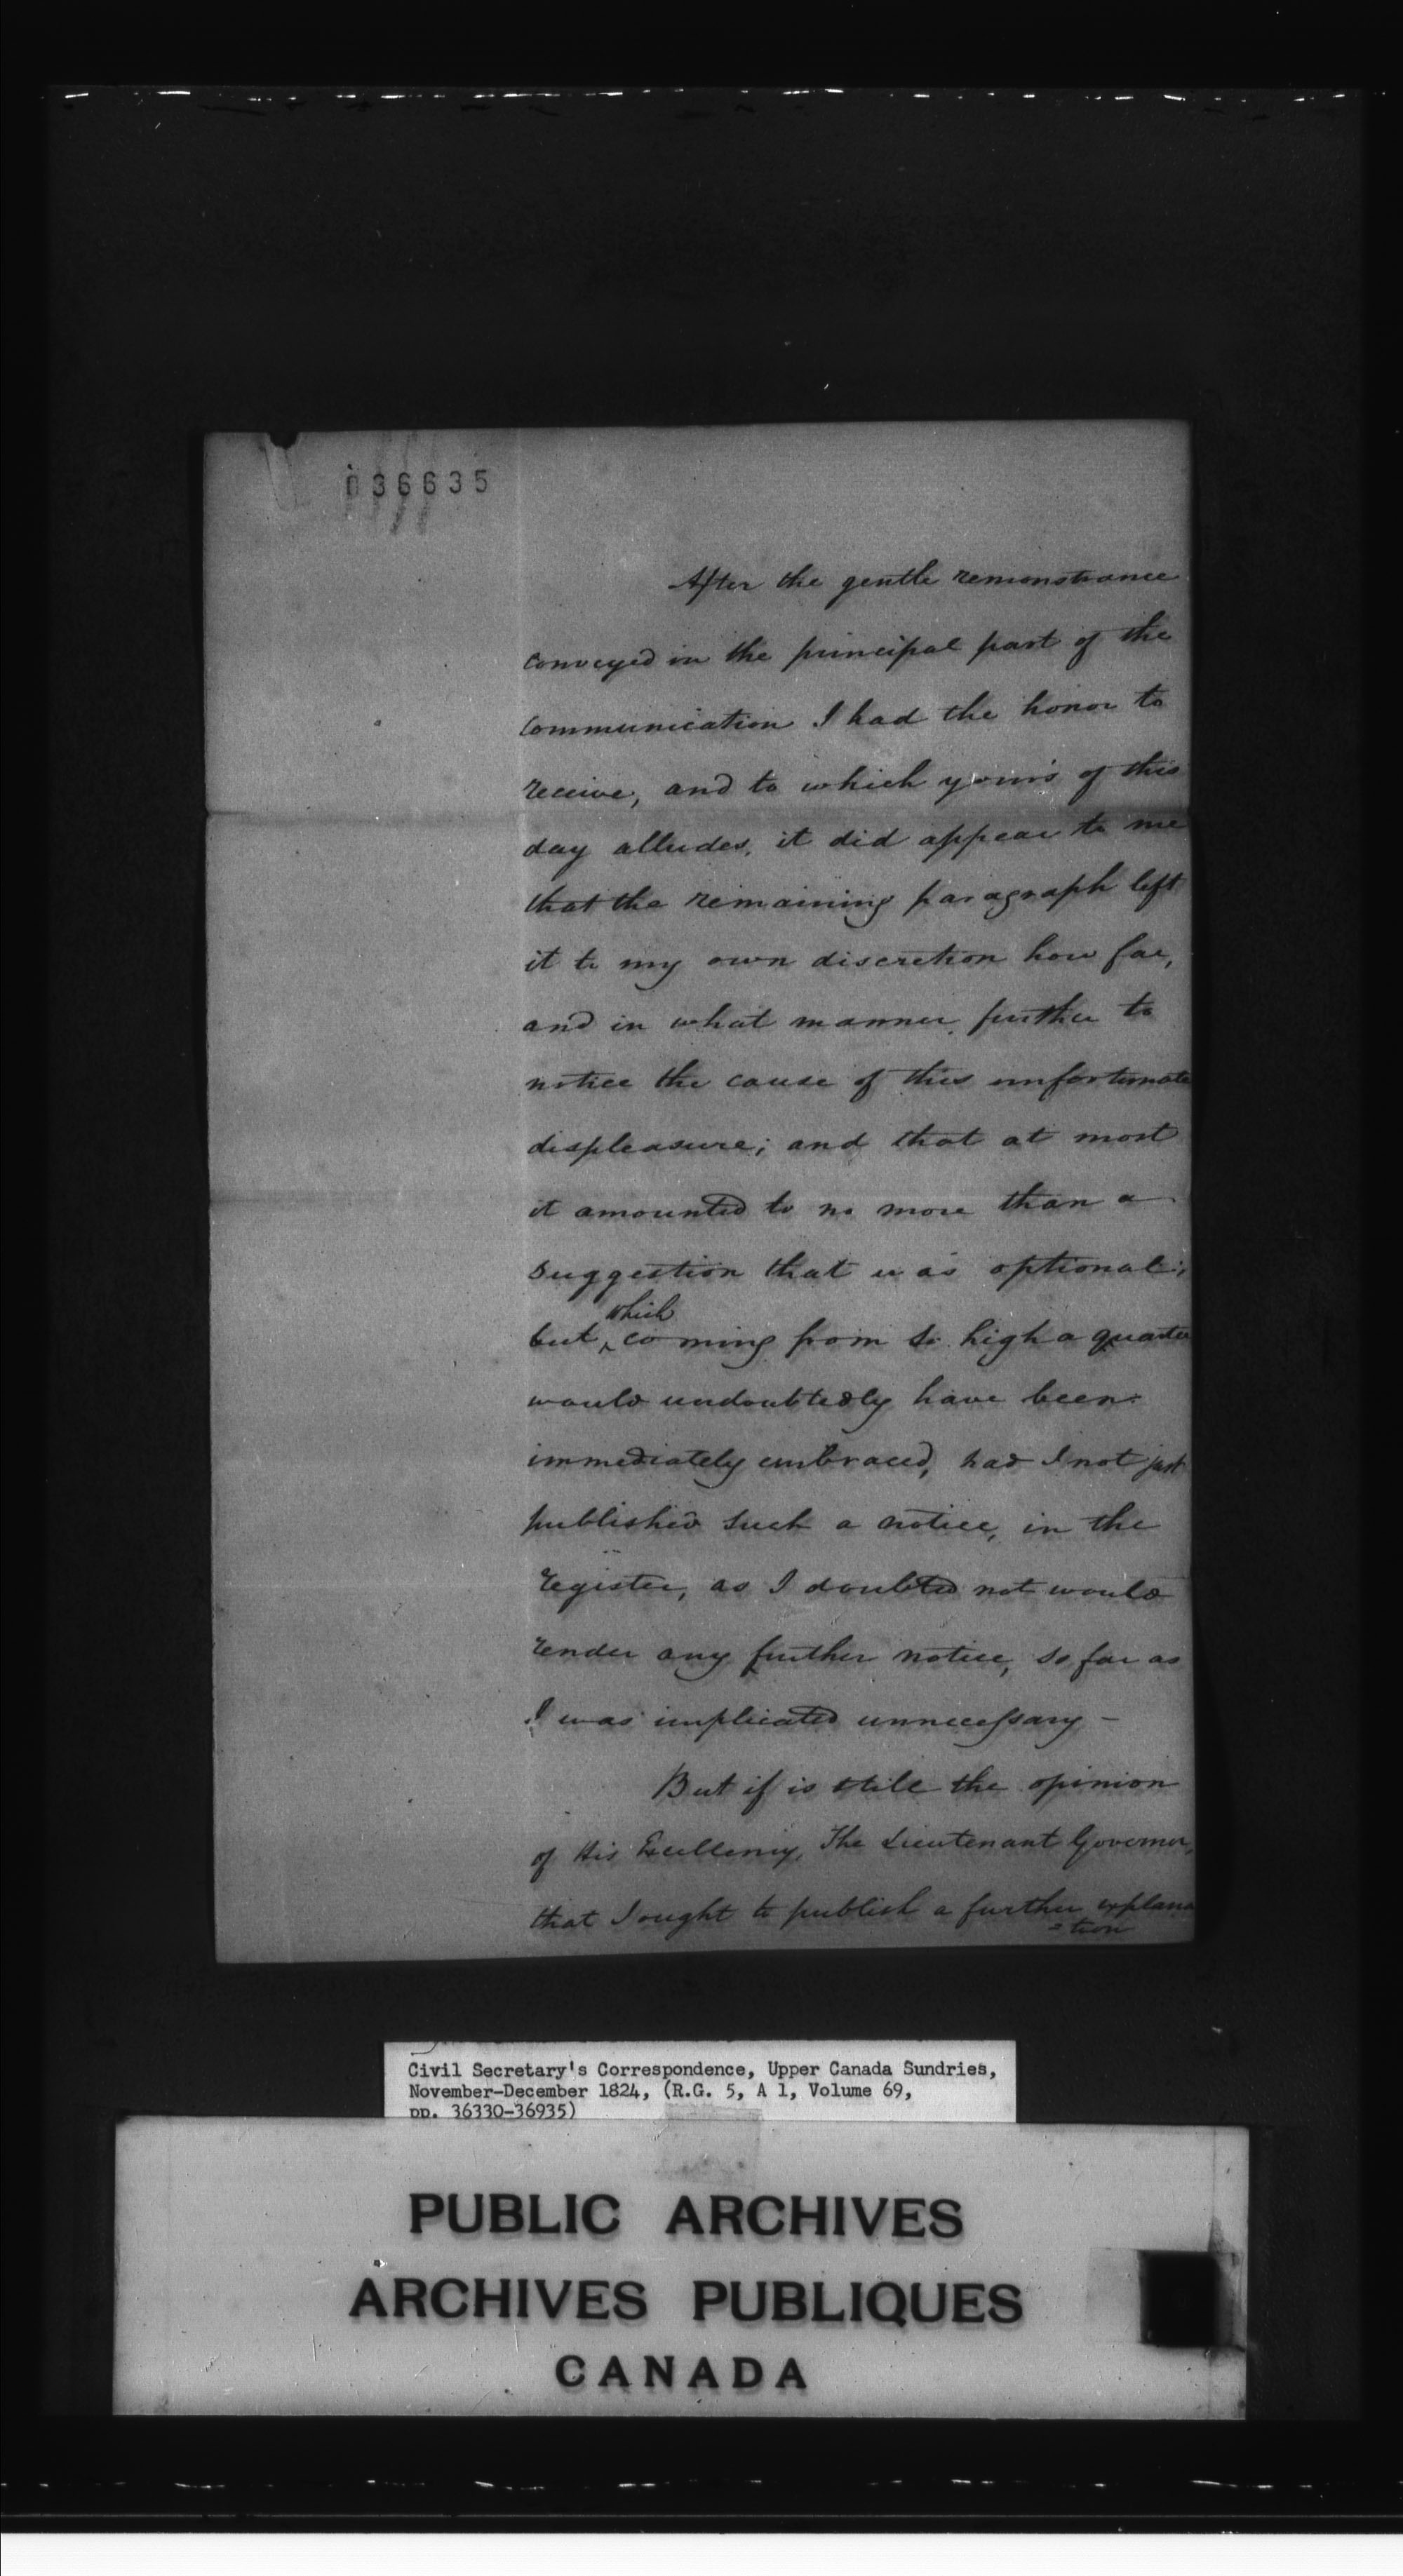 036635
After the gentle remonstrance
conveyed in the principal part of the
communication I had the honor to
receive, and to which your's of this
day alludes, it did appear to me
that the remaining paragraph left
it to my own discretion how far,
and in what manner, further to
notice the cause of this unfortunate
displeasure; and that at most
it amounted to no more than a
suggestion that was optional;
which
but, coming from so high a quarter
would undoubtedly have been
immediately embraced, had I not just
published such a notice, in the
register, as I doubted not would
render any further notice, so far as
I was implicated unnecessary –
But if is still the opinion
of His Excellency, The Lieutenant Governor,
that I ought to publish a further explana
=tion
Civil Secretary's Correspondence, Upper Canada Sundries,
November-December 1824, (R.G. 5, A 1, Volume 69,
pp. 36330-36935)
PUBLIC ARCHIVES
ARCHIVES PUBLIQUES
CANADA